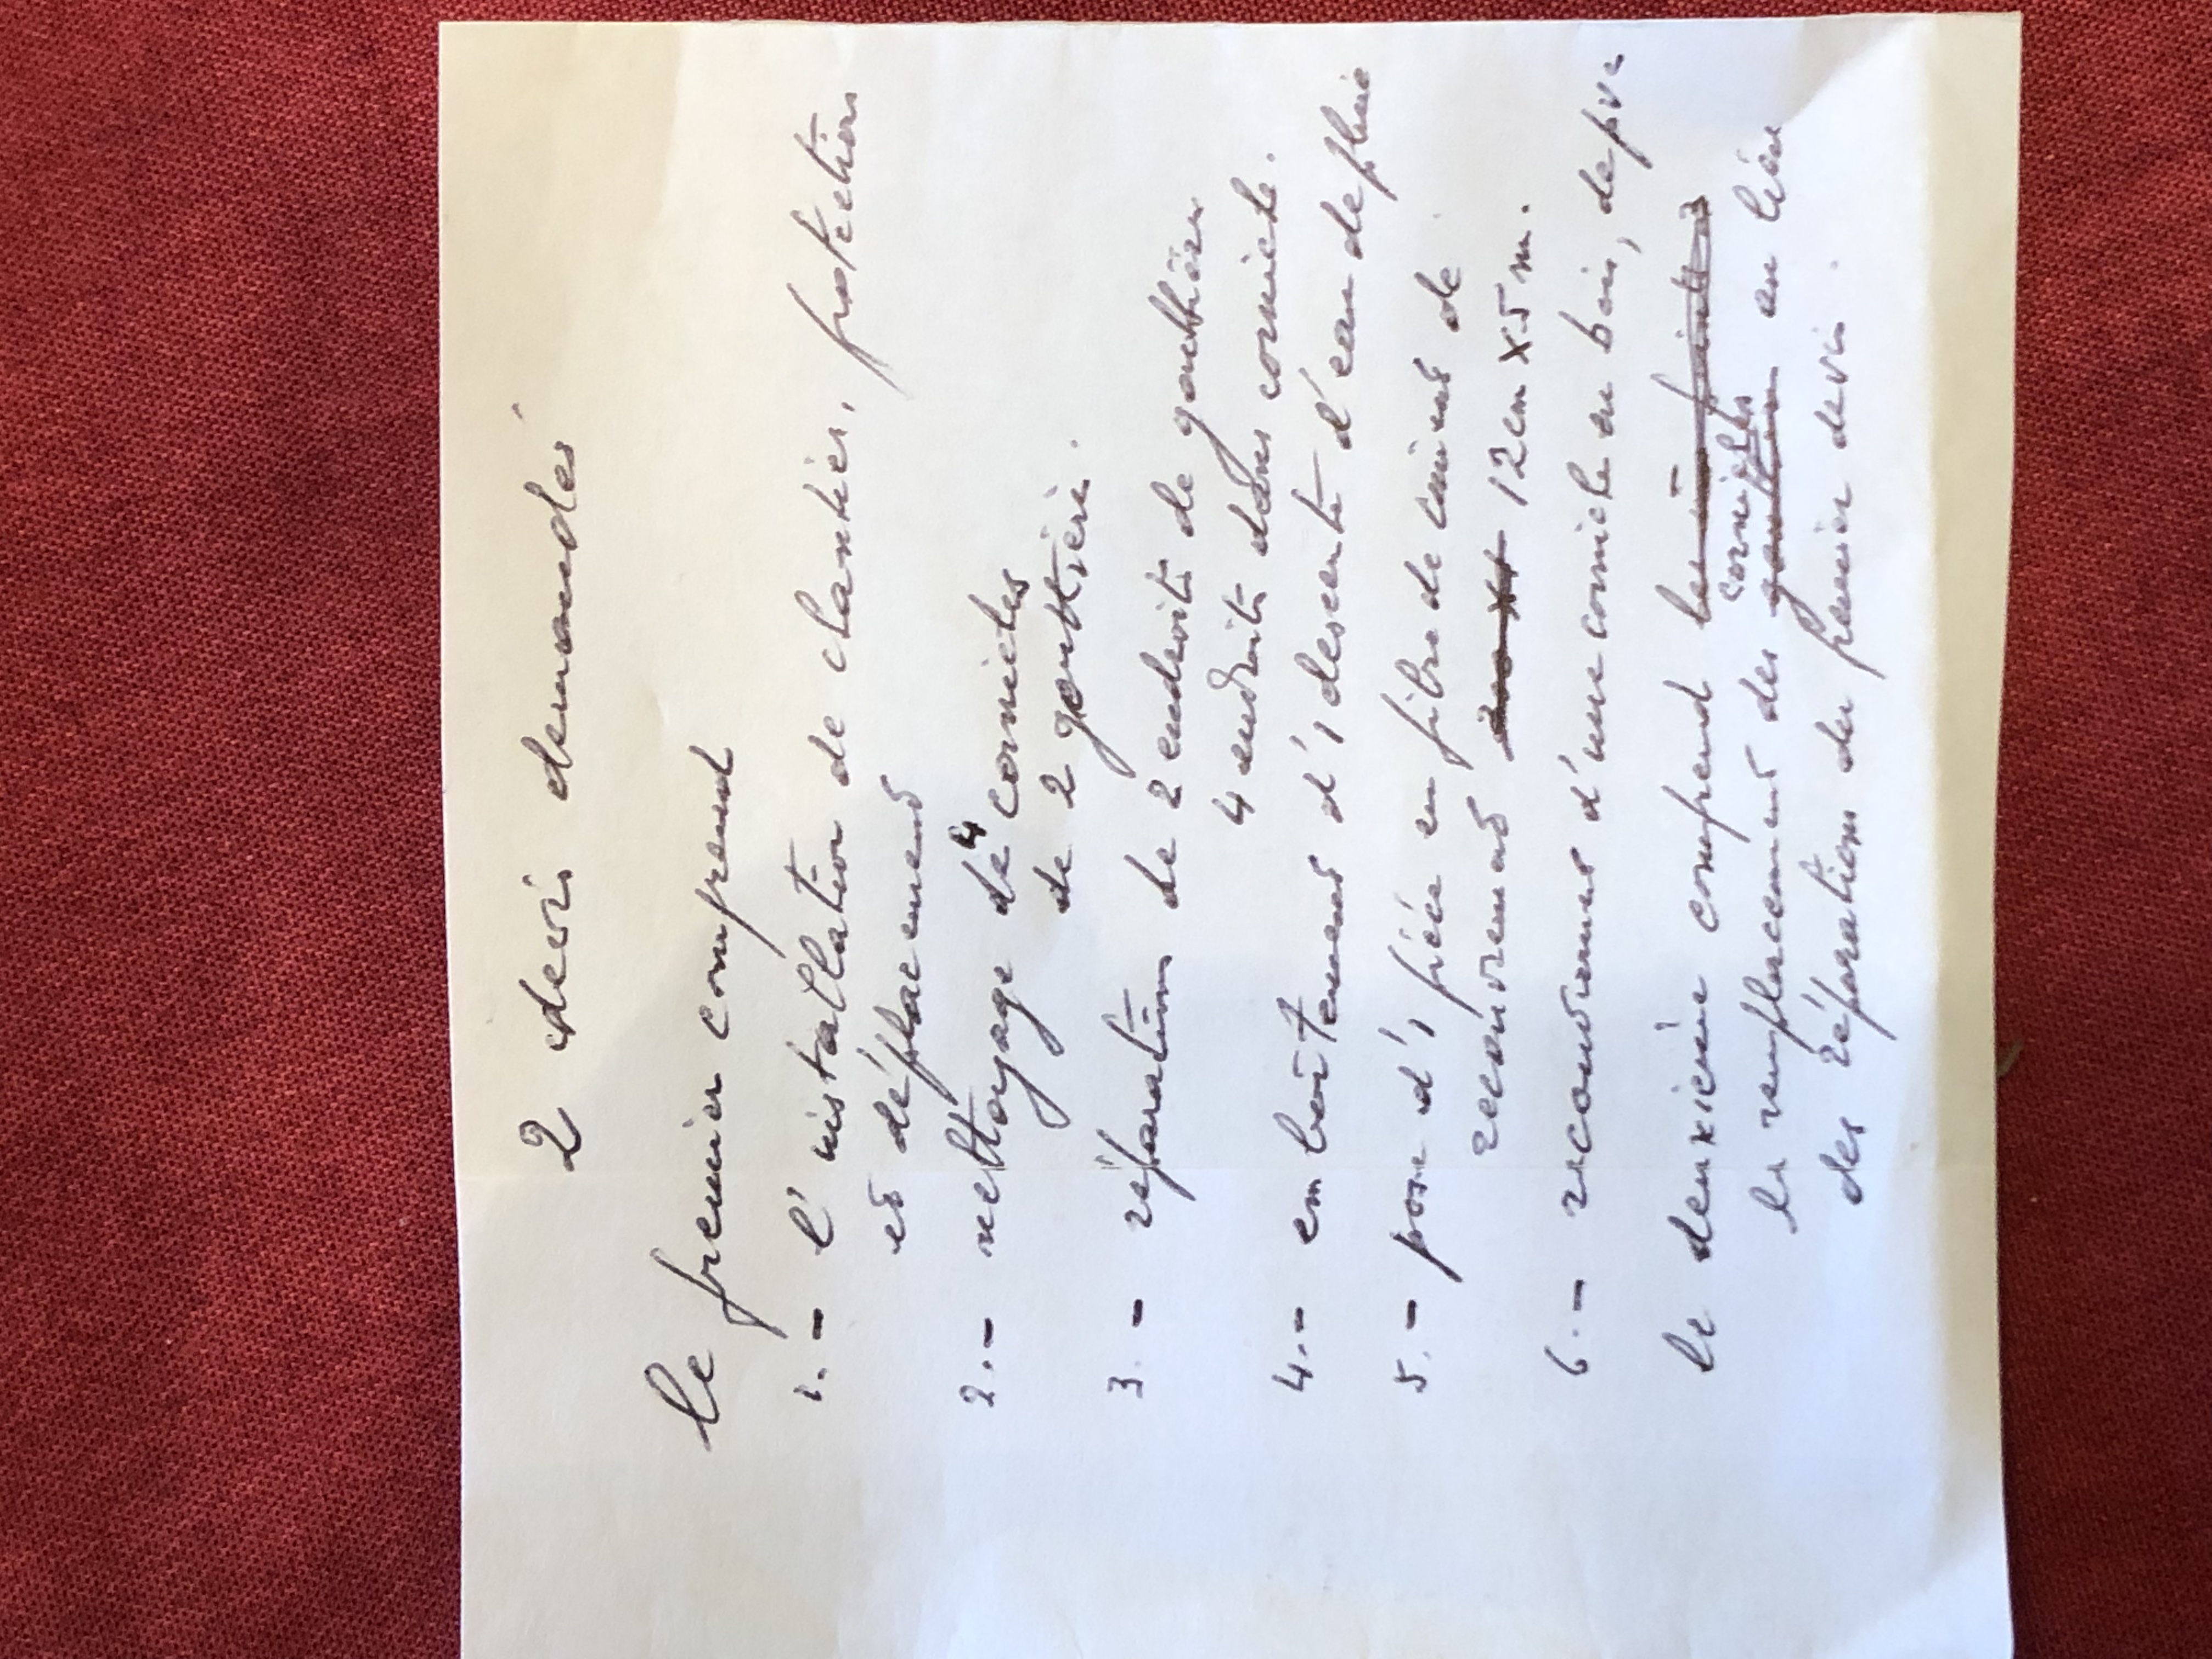 2 devis demandés
le premier comprend
1.- l'installation de chantier, protection
et déplacement
2.- nettoyage de 4 corniches
de 2 gouttières.
3.- réparation de 2 endroits de gouttière
4 endroits dans corniche.
4.- emboitement d'1 descente d'eau de pluie
5.- pose d'1 pièce en fibre de ciment de
recouvrement 12cm x 5m.
6.- recouvrement d'une corniche en bois, de pvc
le deuxième comprend
corniches
le remplacement des gouttières en lieu
des réparations du premier devis.